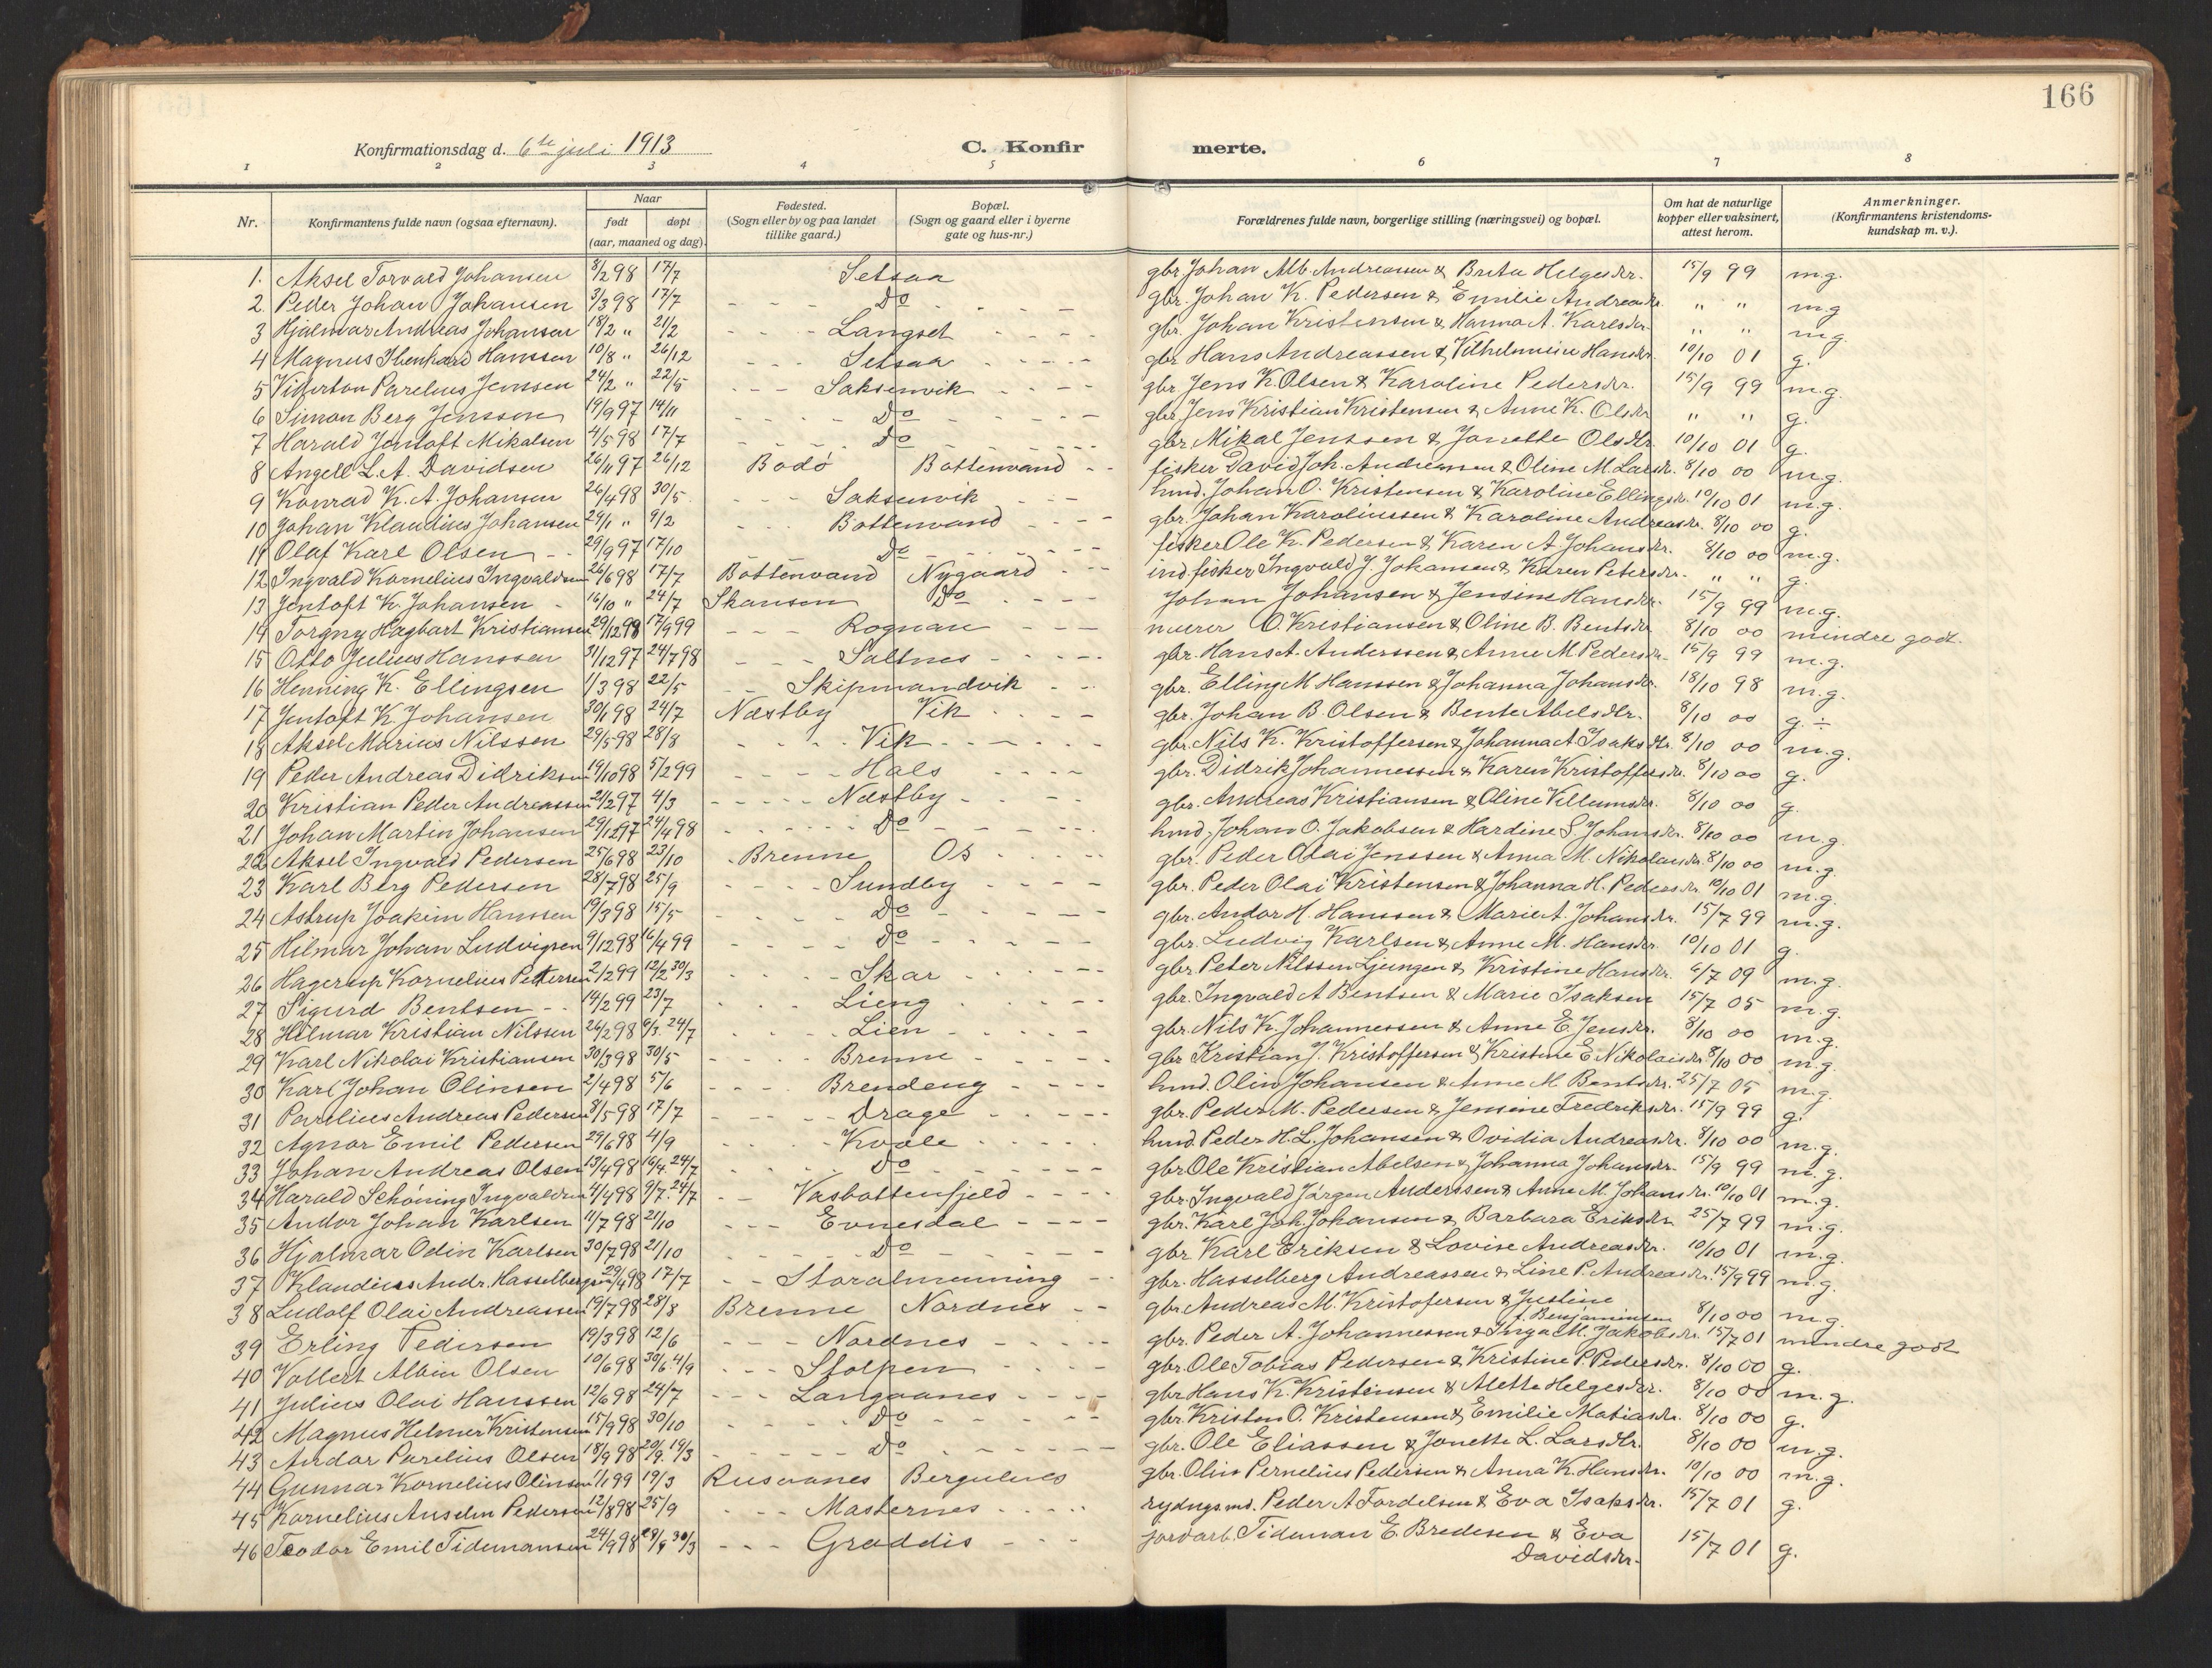 166
Konfirmationsdag d. 6te juli 1913 C. Konfirmerte.
1 2 3 4 5 6 7 8
Nr. Konfirmantens fulde navn (ogsaa efternavn). Naar født døpt (aar, maaned og dag). Fødested. (Sogn eller by og paa landet tillike gaard.) Bopæl. (Sogn og gaard eller i byerne gate og hus-nr.) Forældrenes fulde navn, borgerlige stilling (næringsvei) og bopæl. Om hat de naturlige kopper eller vaksinert, attest herom. Anmerkninger. (Konfirmantens kristendoms-kundskap m. v.).
1. Aksel Torvald Johansen 8/2 98 17/7 Setsaa gbr. Johan Alb. Andreassen & Brita Helgesdtr. 15/9 99 m.g.
2. Peder Johan Johansen 3/3 98 17/7 - - - Do - - - gbr. Johan K. Pedersen & Emilie Andreasdtr. " " m.g
3 Hjalmar Andreas Johansen 18/2 " 21/2 - - - Langset - - - gbr. Johan Kristensen & Hanna A. Karlsdtr. " " m.g.
4 Magnus Hanssen 10/8 " 26/12 - - - Setsaa - - - gbr. Hans Andreassen & Vilhelmine Hansdr. 10/10 01 g.
5 Parelius Jenssen 24/2 " 22/5 - - - Saksenvik - - - gbr. Jens K. Olsen & Karoline Pedersdtr. 15/9 99 m.g.
6 Simon Berg Jenssen 19/9 97 14/11 - - - Do - - - gbr. Jens Kristian Kristensen & Anne K. Olsdr " " g.
7 Harald Jentoft Mikalsen 4/5 98 17/7 - - - Do - - - gbr. Mikal Jenssen & Jonette Olsdtr. 10/10 01 g.
8 Angell L. A. Davidsen 26/11 97 26/12 Bodö Bottenvand - - fisker David Joh. Andreassen & Oline M. Larsdr. 8/10 00 m.g.
9 Konrad K. A. Johansen 26/4 98 30/5 - - - Saksenvik - - - hmd. Johan O. Kristensen & Karoline Ellingsdr. 10/10 01 m.g.
10 Johan Klaudius Johansen 29/1 " 9/2 - - - Bottenvand - - - gbr. Johan Karoliussen & Karoline Andreasdr. 8/10 00 g.
11 Olaf Karl Olsen - - 29/9 97 17/10 Do - - - fisker Ole K. Pedersen & Karen A. Johansdr. 8/10 00 m.g.
12 Ingvald Kornelius Ingvaldsen 26/6 98 17/7 Bottenvand Nygaard - - - ind. fisker Ingvald J. Johansen & Karen Petersdr. " " g.
13 Jentoft K. Johansen - 16/10 " 24/7 Skansen Do - - - Johan Johansen & Jensine Hansdtr. 15/9 99 m.g.
14 Torgny Hagbart Kristiansen 29/12 98 17/9 99 - - - Rognan - - - murer O. Kristiansen & Oline B. Bentsdr 8/10 00 mindre godt
15 Otto Julius Hanssen 31/12 97 24/7 98 - - - Saltnes - - - gbr. Hans A. Anderssen & Anne M Pedersdr. 15/9 99 m.g.
16 Henning K. Ellingsen 1/3 98 22/5 - - Skipmandvik - - gbr. Elling M Hanssen & Johanna Johansdr. 18/10 98 m.g.
17 Jentoft K. Johansen 30/1 98 24/7 Næstby Vik - - - gbr. Johan B. Olsen & Bente Abelsdtr. 8/10 00 g. ÷
18 Aksel Marius Nilssen 29/5 98 28/8 - - - Vik - - - gbr. Nils K. Kristoffersen & Johanna A. Isaksdtr. 8/10 00 m.g.
19 Peder Andreas Didriksen 19/10 98 5/2 99 - - - Hals - - - gbr. Didrik Johannessen & Karen Kristoffersdr. 8/10 00 g.
20 Kristian Peder Andreassen 21/2 97 4/3 - - - Næstby - - - gbr. Andreas Kristiansen & Oline Villumsdr. 8/10 00 g.
21 Johan Martin Johansen 29/12 97 24/4 98 - - - Do - - - hmd. Johan O. Jakobsen & Hardine S. Johansdr. 8/10 00 m.g.
22 Aksel Ingvald Pedersen 25/6 98 23/10 - Brenne Os - - - gbr. Peder Olai Jenssen & Anna M. Nikolaisdr. 8/10 00 m.g.
23 Karl Berg Pedersen 28/7 98 25/9 - - - Sundby - - - gbr. Peder Olai Kristensen & Johanna H. Pedersdr. 10/10 01 m.g.
24 Astrup Joakim Hanssen 19/3 98 15/5 - - - Do - - - gbr. Andor H. Hanssen & Marie A. Johansdr. 15/7 99 m.g.
25 Hilmar Johan Ludvigsen 9/12 98 16/4 99 - - - Do - - - gbr. Ludvig Karlsen & Anne M. Hansdr. 10/10 01 g.
26 Hagerup Kornelius Pettersen 2/2 99 12/2 30/3 - - - Skar - - - gbr. Peter Nilssen Ljungen & Kristine Hansdr. 6/7 09 m.g.
27 Sigurd Bentsen - - 14/2 99 23/7 - - - Lieng - - - gbr. Ingvald A Bentsen & Marie Isaksen 15/7 05 m.g.
28 Hilmar Kristian Nilssen 26/2 98 6/3 24/7 - - - Lien - - - gbr. Nils K. Johannessen & Anne E. Jensdr. 8/10 00 m.g.
29 Karl Nikolai Kristiansen 30/3 98 30/5 - - - Brenne - - - gbr. Kristian J. Kristoffersen & Kristine E. Nikolaisdr. 8/10 00 m.g.
30 Karl Johan Olinsen 2/4 98 5/6 - - - Brendeng - - - hmd. Olin Johansen & Anne M. Bentsdr. 25/7 05 m.g.
31 Parelius Andreas Pedersen 8/5 98 17/7 - - - Drage - - - gbr. Peder M. Pedersen & Jensine Fredriksdr. 15/9 99 g.
32 Agnar Emil Pedersen 29/6 98 4/9 - - - Kvæle - - - hmd. Peder H. L. Johansen & Ovidia Andreasdr. 8/10 00 m.g.
33 Johan Andreas Olsen 13/4 98 16/4. 24/7 - - - Do - - - gbr. Ole Kristian Abelsen & Johanna Johansdr. 15/9 99 m.g.
34 Harald Schöning Ingvaldsen 4/4 98 9/7. 24/7 - - Vasbottenfjeld - - - gbr. Ingvald Jörgen Anderssen & Anne M. Johansdr. 10/10 01 m.g.
35 Andor Johan Karlsen 11/7 98 21/10 - - - Evnesdal - - - gbr. Karl Joh. Johansen & Barbara Eriksdr. 25/7 99 m.g.
36 Hjalmar Odin Karlsen 30/7 98 21/10 - - - Do - - - gbr. Karl Eriksen & Lovise Andreasdr. 10/10 01 m.g.
37 Klaudius Andr. Hasselbergsen 29/4 98 17/7 - - Storalmenning - - gbr. Hasselberg Andreassen & Line P. Andreasdr. 15/9 99 m.g.
38 Ludolf Olai Andreassen 19/7 98 28/8 Brenne Nordnes - - gbr. Andreas M. Kristofersen & Justine
f. Benjaminsen 8/10 00 m.g.
39 Erling Pedersen 19/3 98 12/6 - - - Nordnes - - - gbr. Peder A. Johannessen & Inga M. Jakobsdr. 15/7 01 mindre godt
40 Vollert Albin Olsen 10/6 98 30/6 4/9 - - - Stolpen - - - gbr. Ole Tobias Pedersen & Kristine P. Pedersdr. 8/10 00 g.
41 Julius Olai Hanssen 12/6 98 24/7 - - - Langaanes - - - gbr. Hans K. Kristensen & Alette Helgesdtr. 8/10 00 m.g.
42 Magnus Helmer Kristensen 15/9 98 30/10 - - - Do - - - gbr. Kristen O. Kristensen & Emilie Matiasdr. 8/10 00 g.
43 Andor Parelius Olsen 18/9 98 20/9. 19/3 - - - Do - - - gbr. Ole Eliassen & Jonette L. Larsdtr. 8/10 00 m.g.
44 Gunnar Kornelius Olinsen 1/1 99 19/3 Rusaanes Bergulnes gbr. Olin Pernelius Pedersen & Anna K. Hansdr. 10/10 00 m.g.
45 Kornelius Anselm Pedersen 12/8 98 25/9 - - Masternes - - - rydngs.md. Peder A Fordelsen & Eva Isaksdr. 15/7 01 g.
46 Teodor Emil Tidemansen 24/9 98 28/9 30/3 - - - Graddis - - - jordarb. Tideman E. Bredesen & Eva
Davidsdr. 15/7 01 g.